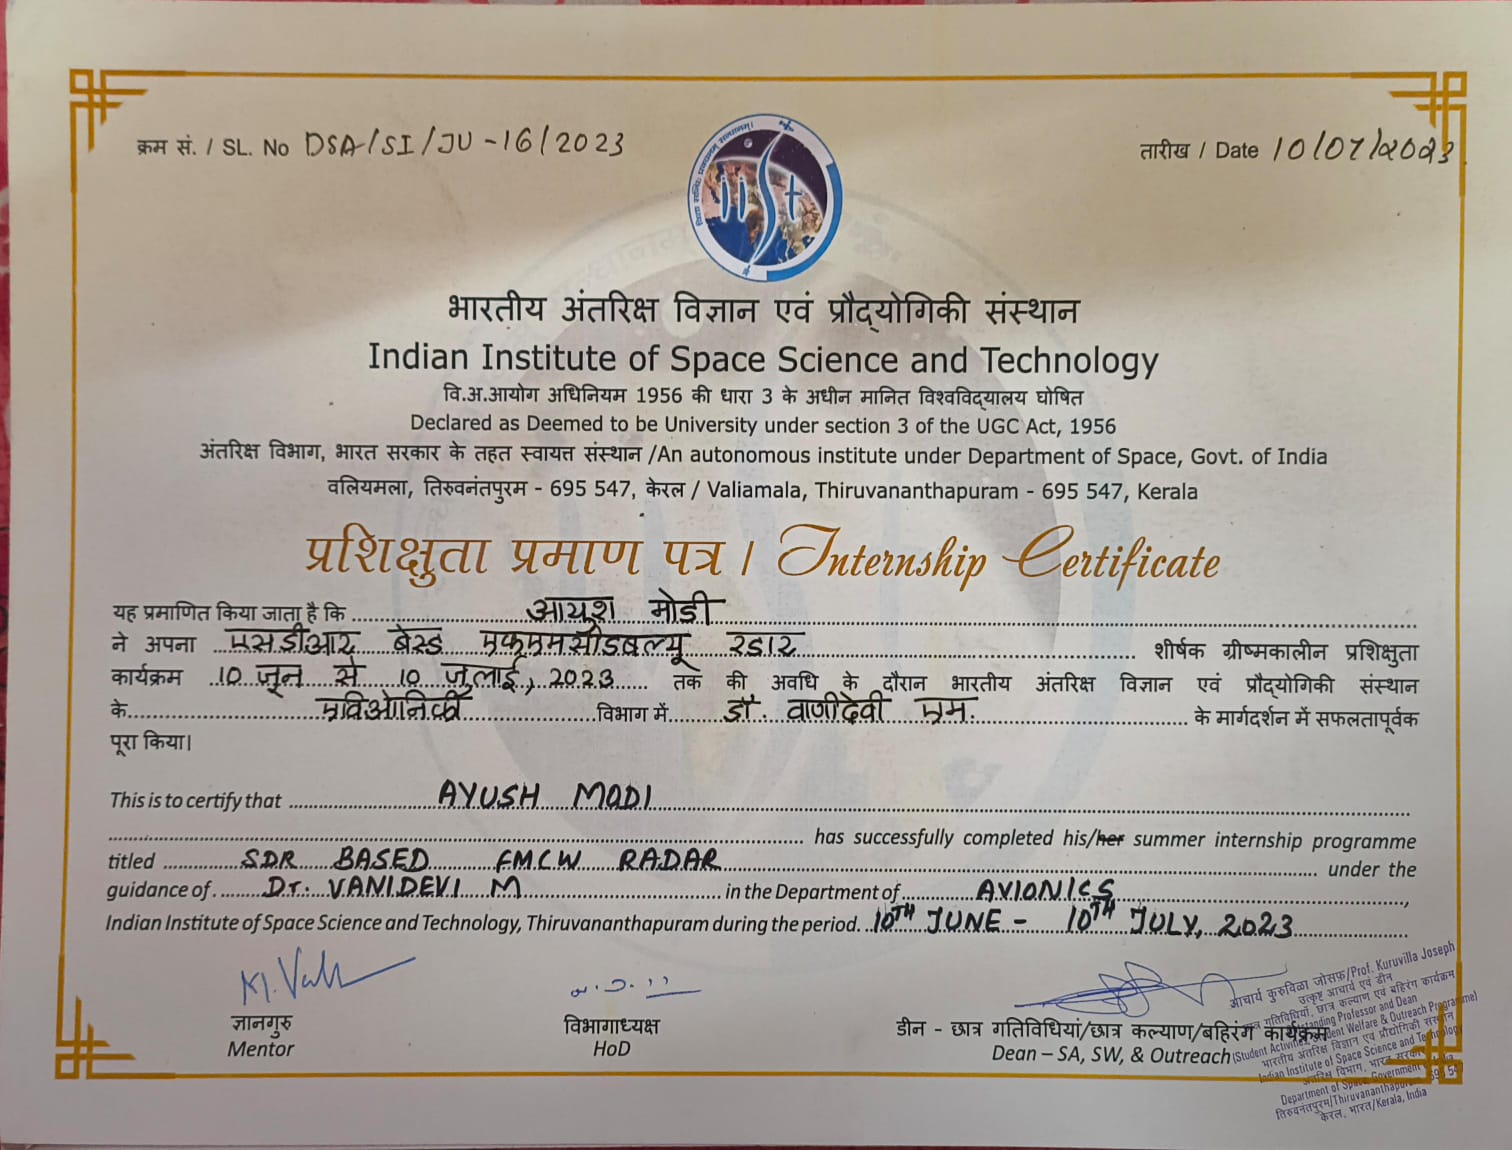 क्रम सं. / SL. No DSA/SI/JU-16/2023
तारीख / Date 10/07/2023
iist
भारतीय अंतरिक्ष विज्ञान एवं प्रौद्योगिकी संस्थान
Indian Institute of Space Science and Technology
वि.अ.आयोग अधिनियम 1956 की धारा 3 के अधीन मानित विश्वविद्यालय घोषित
Declared as Deemed to be University under section 3 of the UGC Act, 1956
अंतरिक्ष विभाग, भारत सरकार के तहत स्वायत्त संस्थान /An autonomous institute under Department of Space, Govt. of India
वलियमला, तिरुवनंतपुरम - 695 547, केरल / Valiamala, Thiruvananthapuram - 695 547, Kerala
प्रशिक्षुता प्रमाण पत्र / Internship Certificate
यह प्रमाणित किया जाता है कि आयुश मोडी
ने अपना एसडीआर बेस्ड एफएमसीडबल्यू रडार शीर्षक ग्रीष्मकालीन प्रशिक्षुता
कार्यक्रम 10 जून से 10 जुलाई, 2023 तक की अवधि के दौरान भारतीय अंतरिक्ष विज्ञान एवं प्रौद्योगिकी संस्थान
के एविओनिकी विभाग में डॉ. वाणीदेवी एम. के मार्गदर्शन में सफलतापूर्वक
पूरा किया।
This is to certify that AYUSH MODI
has successfully completed his/her summer internship programme
titled SDR BASED FMCW RADAR under the
guidance of Dr. VANIDEVI M in the Department of AVIONICS,
Indian Institute of Space Science and Technology, Thiruvananthapuram during the period. 10TH JUNE - 10TH JULY, 2023
ज्ञानगुरु
Mentor
विभागाध्यक्ष
HoD
डीन - छात्र गतिविधियां/छात्र कल्याण/बहिरंग कार्यक्रम
Dean – SA, SW, & Outreach
आचार्य कुरुविळा जोसफ/Prof. Kuruvilla Joseph
उत्कृष्ट आचार्य एवं डीन
गतिविधियाँ, छात्र कल्याण एवं बहिरंग कार्यक्रम
Professor and Dean
(Student Welfare & Outreach Programme)
भारतीय अंतरिक्ष विज्ञान एवं प्रौद्योगिकी संस्थान
Indian Institute of Space Science and Technology
अंतरिक्ष विभाग, भारत सरकार
Department of Space, Government
तिरुवनंतपुरम/Thiruvananthapuram
केरल, भारत/Kerala, India